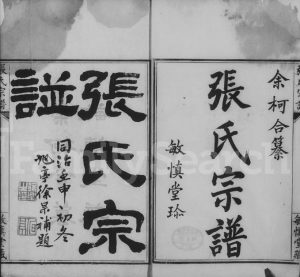 余柯合纂
張氏宗譜
敏慎堂珍
張氏宗
譜
同治壬申初冬
徐宗補題
FamilySearch